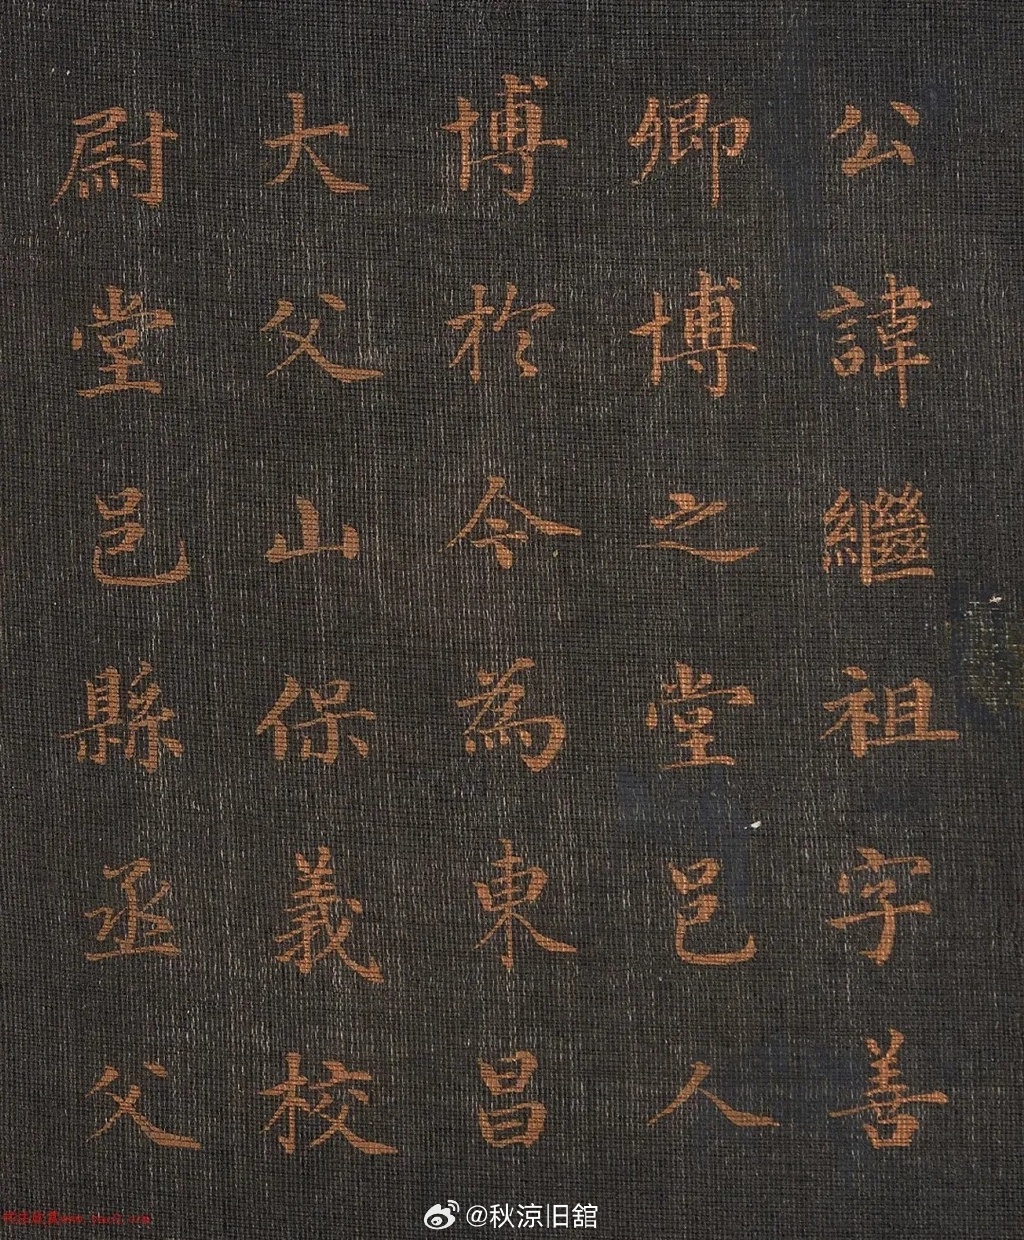 公諱繼祖字善
卿博之堂邑人
博於今為東昌
大父山保義校
尉堂邑縣丞父
@秋涼旧舘